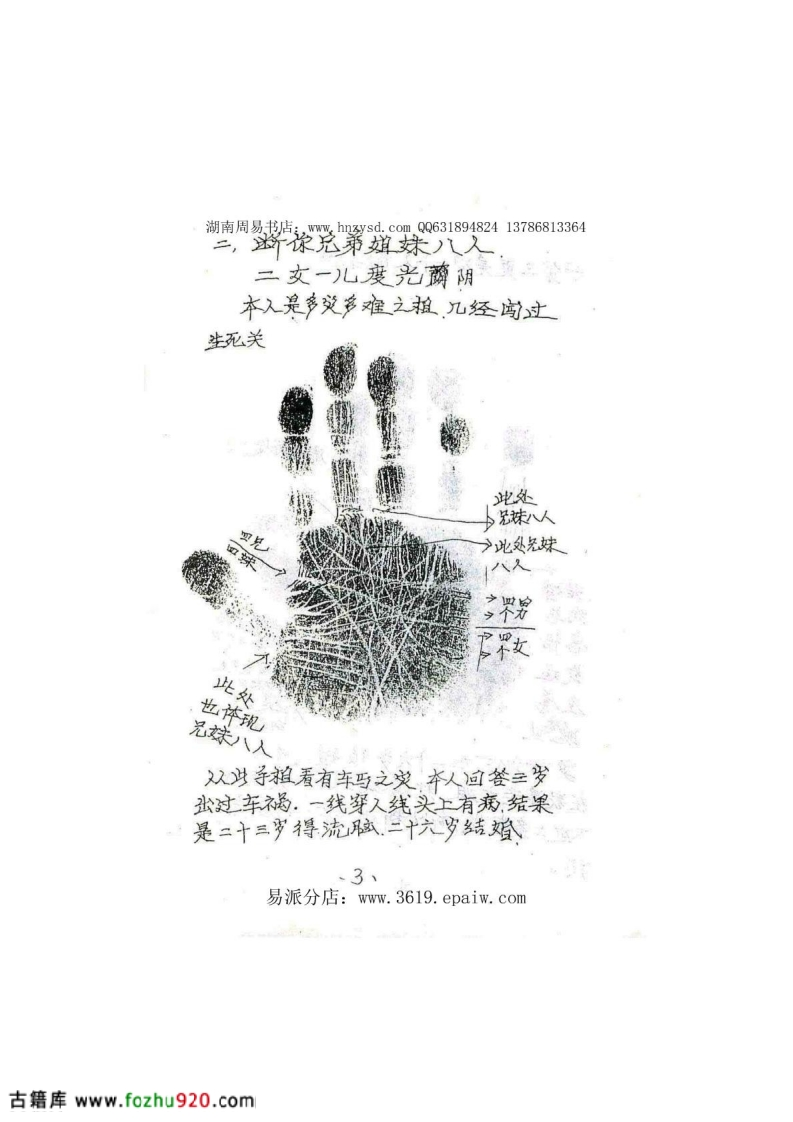 湖南周易书店：www.hnzysd.com QQ631894824 13786813364
二，断你兄弟姐妹八人
二女一儿度光阴
本人是多灾多难之相，几经闯过
生死关
此处
兄妹八人
此处兄妹
八人
四兄
四妹
四个男
四个女
此处
也体现
兄妹八人
从此手相看有车马之灾，本人回答三岁
出过车祸．一线穿入线头上有病，结果
是二十三岁得流脑．二十六岁结婚
.3、
易派分店：www.3619.epaiw.com
古籍库 www.fozhu920.com